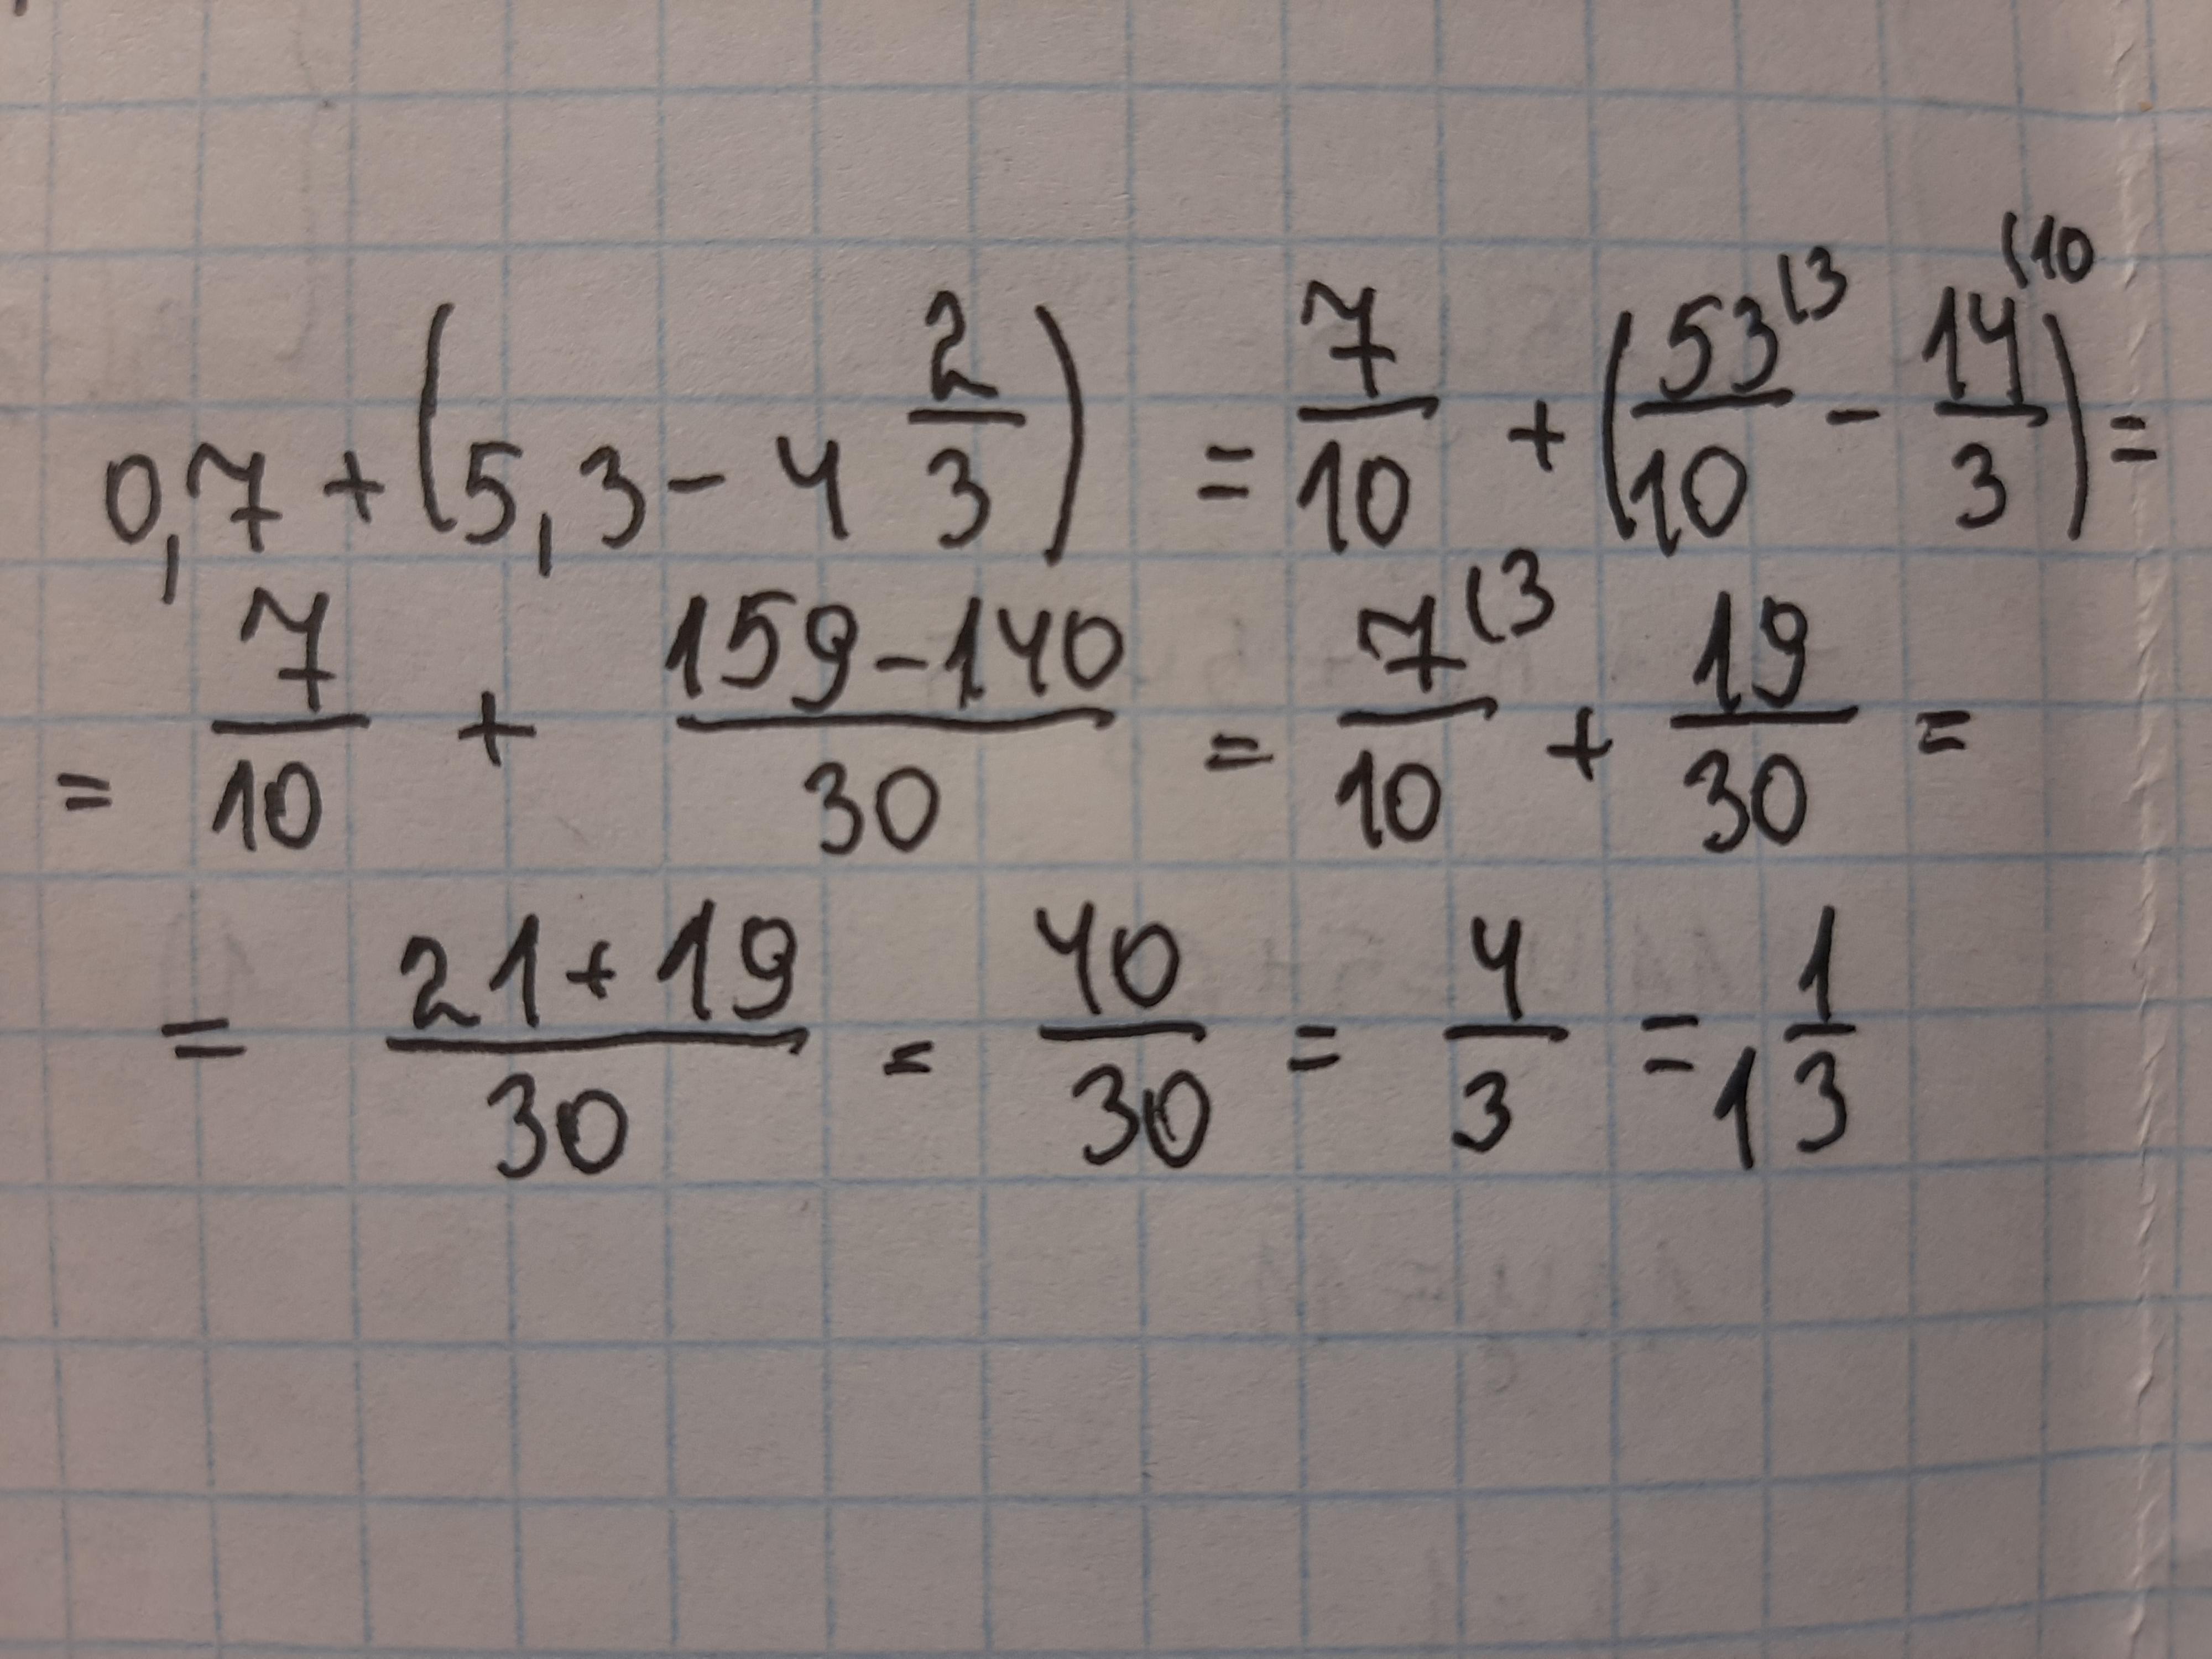 0,7 + (5,3 - 4 2/3) = 7/10 + (53/10 (3 - 14/3 (10) =
= 7/10 + (159-140)/30 = 7/10 (3 + 19/30 =
= (21+19)/30 = 40/30 = 4/3 = 1 1/3